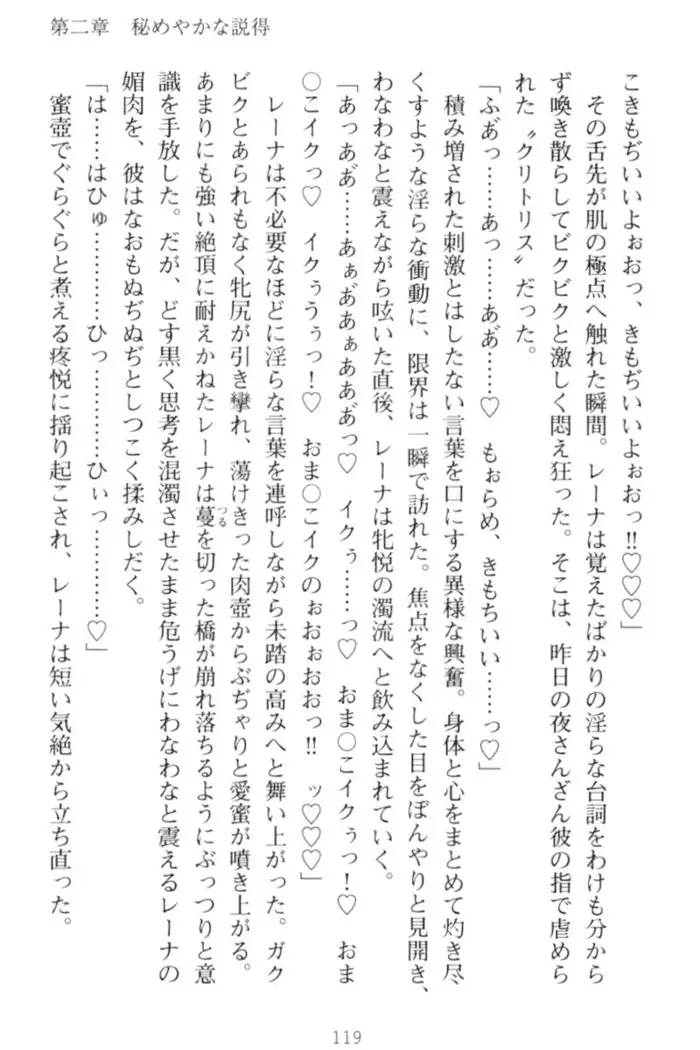 第二章　秘めやかな説得
こきもぢいいよぉおっ、きもぢいいよぉおっ!!♡♡♡」
その舌先が肌の極点へ触れた瞬間。レーナは覚えたばかりの淫らな台詞をわけも分から
ず喚き散らしてビクビクと激しく悶え狂った。そこは、昨日の夜さんざん彼の指で虐めら
れた〝クリトリス〟だった。
「ふあ゛っ……あっ……ああ゛……♡　もぉらめ、きもちいい……っ♡」
積み増された刺激とはしたない言葉を口にする異様な興奮。身体と心をまとめて灼き尽
くすような淫らな衝動に、限界は一瞬で訪れた。焦点をなくした目をぼんやりと見開き、
わなわなと震えながら呟いた直後、レーナは牝悦の濁流へと飲み込まれていく。
「あっああ゛……あぁあ゛あぁああ゛っ♡　イクぅ……っ♡　おま○こイクぅっ！♡　おま
○こイクっ♡　イクぅうぅっ！♡　おま○こイクのぉおぉおおっ!!　ッ♡♡♡」
レーナは不必要なほどに淫らな言葉を連呼しながら未踏の高みへと舞い上がった。ガク
ビクとあられもなく牝尻が引き攣れ、蕩けきった肉壺からぶぢゃりと愛蜜が噴き上がる。
あまりにも強い絶頂に耐えかねたレーナは蔓つるを切った橋が崩れ落ちるようにぶっつりと意
識を手放した。だが、どす黒く思考を混濁させたまま危うげにわなわなと震えるレーナの
媚肉を、彼はなおもぬぢぬぢとしつこく揉みしだく。
「は……はひゅ…………ひっ…………ひぃっ…………♡」
蜜壺でぐらぐらと煮える疼悦に揺り起こされ、レーナは短い気絶から立ち直った。
119